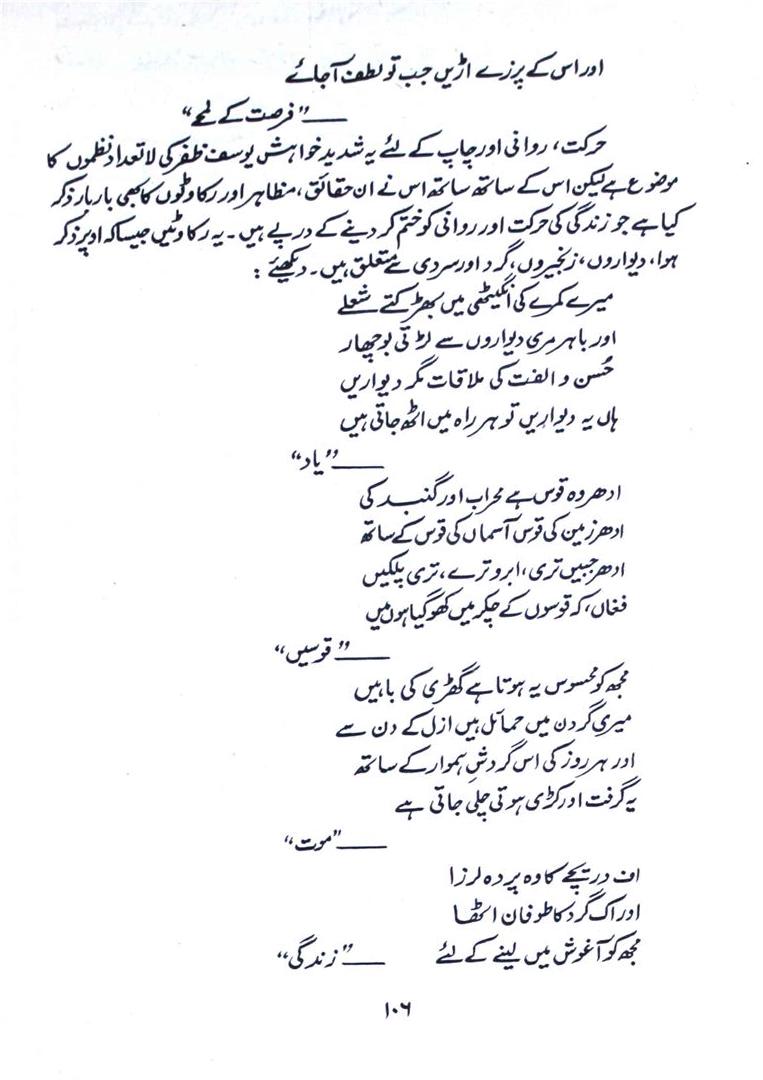 اور اس کے پرزے اڑیں جب تو لطف آجائے
——”فرصت کے لمحے“
حرکت، روانی اور چاپ کے لئے یہ شدید خواہش یوسف ظفر کی لاتعداد نظموں کا
موضوع ہے لیکن اس کے ساتھ ساتھ اس نے ان حقائق، مظاہر اور رکاوٹوں کا بھی بار بار ذکر
کیا ہے جو زندگی کی حرکت اور روانی کو ختم کر دینے کے درپے ہیں۔ یہ رکاوٹیں جیسا کہ اوپر ذکر
ہوا، دیواروں، زنجیروں، گرد اور سردی سے متعلق ہیں۔ دیکھئے :
میرے کمرے کی انگیٹھی میں بھڑکتے شعلے
اور باہر مری دیواروں سے لڑتی بوچھار
حُسن و الفت کی ملاقات مگر دیواریں
ہاں یہ دیواریں تو ہر راہ میں اٹھ جاتی ہیں
——”یاد“
ادھر وہ قوس ہے محراب اور گنبد کی
ادھر زمین کی قوس آسماں کی قوس کے ساتھ
ادھر جبیں تری، ابرو ترے، تری پلکیں
فغاں، کہ قوسوں کے چکر میں کھو گیا ہوں میں
——”قوسیں“
مجھ کو محسوس یہ ہوتا ہے گھڑی کی باہیں
میری گردن میں حمائل ہیں ازل کے دن سے
اور ہر روز کی اس گردشِ ہموار کے ساتھ
یہ گرفت اور کڑی ہوتی چلی جاتی ہے
——”موت“
اف دریچے کا وہ پردہ لرزا
اور اک گرد کا طوفان اٹھا
مجھ کو آغوش میں لینے کے لئے ——”زندگی“
۱۰۶